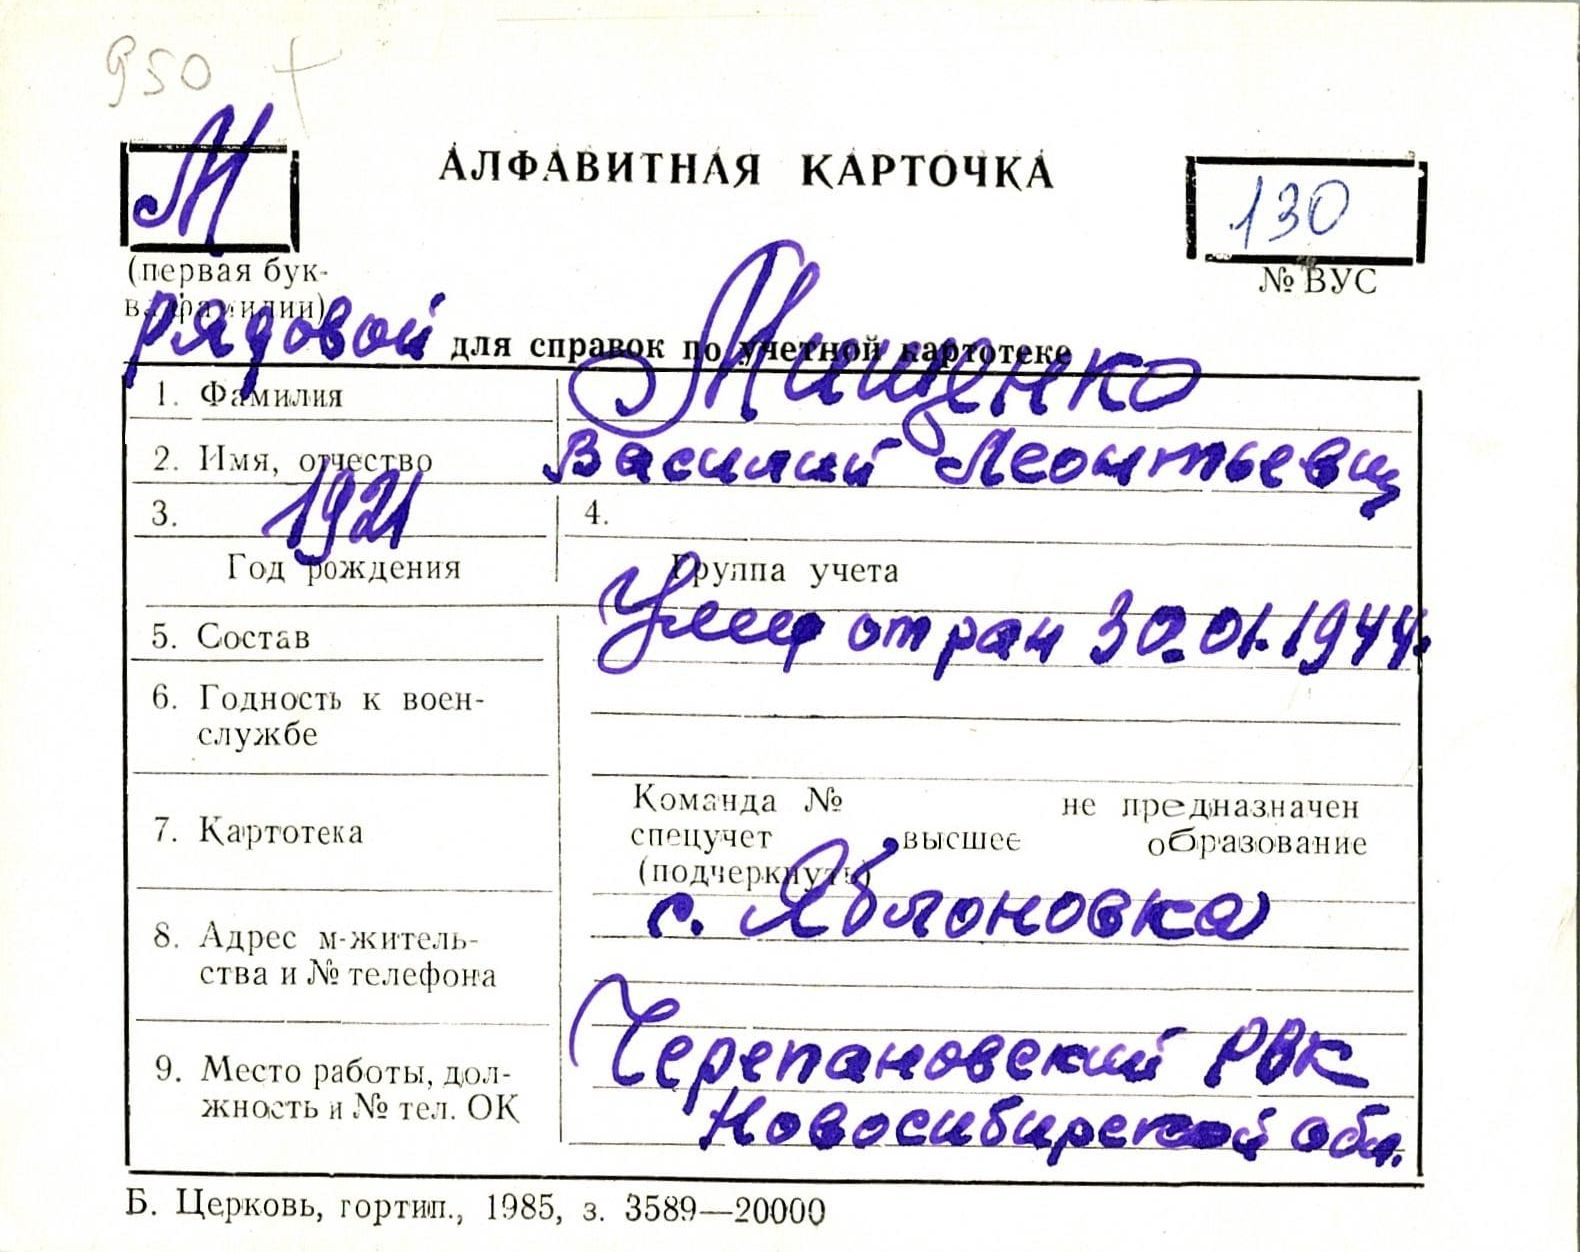 950 +
М
АЛФАВИТНАЯ КАРТОЧКА
130
(первая бук-
ва фамилии)
№ ВУС
рядовой
для справок по учетной картотеке
1. Фамилия
Мищенко
2. Имя, отчество
Василий Леонтьевич
3. 1921
4.
Год рождения
Группа учета
5. Состав
Умер от ран 30.01.1944г.
6. Годность к воен-
службе
7. Картотека
Команда № не предназначен
спецучет высшее образование
(подчеркнуть)
8. Адрес м-житель-
ства и № телефона
с. Яблоновка
9. Место работы, дол-
жность и № тел. ОК
Черепановский РВК
Новосибирской обл.
Б. Церковь, гортип., 1985, з. 3589—20000